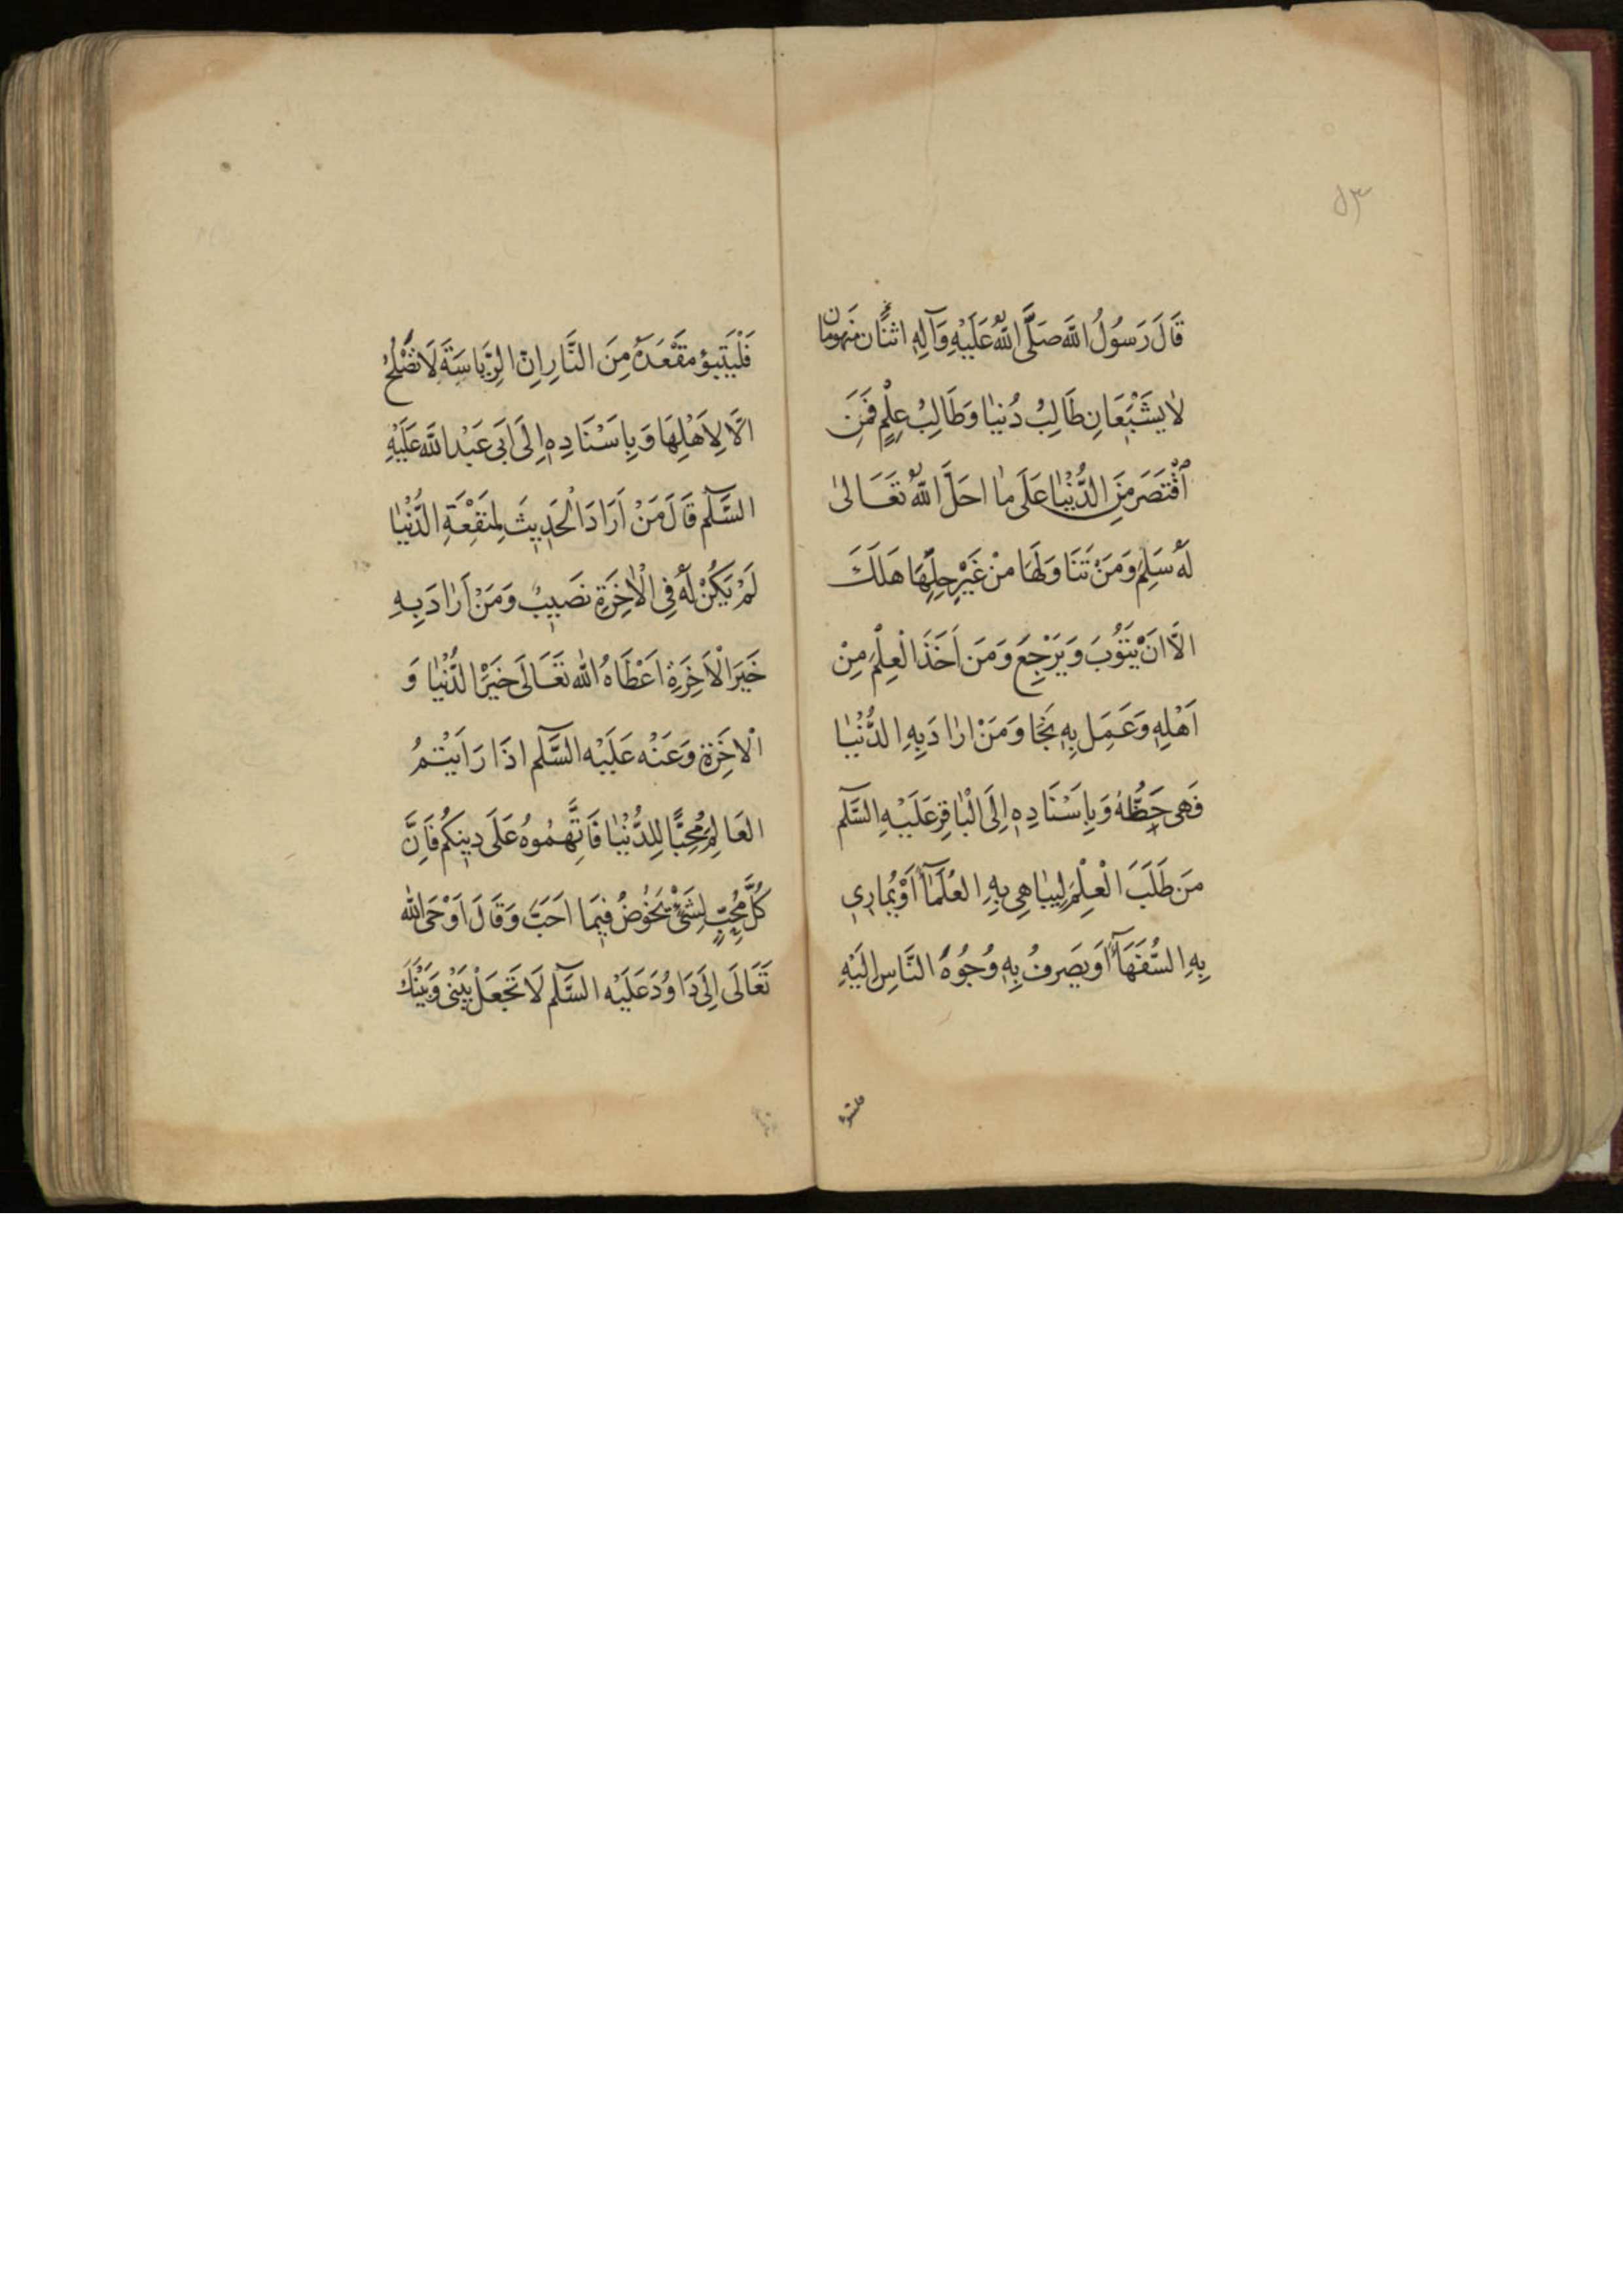 ٥٣
قَالَ رَسُولُ اللَّهِ صَلَّى اللَّهُ عَلَيْهِ وَآلِهِ اثْنَانِ مَنْهُومَانِ
لَا يَشْبَعَانِ طَالِبُ دُنْيَا وَطَالِبُ عِلْمٍ فَمَنِ
اقْتَصَرَ مِنَ الدُّنْيَا عَلَى مَا احَلَّ اللَّهُ تَعَالَى
لَهُ سَلِمَ وَمَنْ تَنَاوَلَهَا مِنْ غَيْرِ حِلِّهَا هَلَكَ
الَّا انْ يَتُوبَ وَيَرْجِعَ وَمَن اَخَذَ الْعِلْمَ مِنْ
اَهْلِهِ وَعَمِلَ بِهِ نَجَا وَمَنْ ارَادَ بِهِ الدُّنْيَا
فَهِىَ حَظُّهُ وَبِاِسْنَادِهِ اِلَى الْبَاقِرِ عَلَيْهِ السَّلَم
مَن طَلَبَ الْعِلْمَ لِيُبَاهِىَ بِهِ العُلَمَآءَ اَوْ يُمَارِى
بِهِ السُّفَهَآءَ اَو يَصرِفُ بِهِ وُجُوهَ النَّاسِ اِلَيْهِ
فلیتبوء
فَلْيَتَبَوَّؤ مَقْعَدَهُ مِنَ النَّارِ اِنّ الرِّيَاسَةَ لَا تَصْلُحُ
الَّا لِاَهْلِهَا وَبِاِسْنَادِهِ اِلَى اَبِى عَبْدِ اللَّه عَلَيْهِ
السَّلَم قَالَ مَنْ اَرَادَ الْحَدِيثَ لِمَنْفَعَةِ الدُّنْيَا
لَمْ يَكُنْ لَهُ فِى الْاخِرَةِ نَصِيبٌ وَمَنْ اَرَادَ بِهِ
خَيْرَ الْاخِرَةِ اعْطَاهُ اللّه تَعَالَى خَيْرَ الدُّنْيَا وَ
الْاخِرَةِ وَعَنْه عَلَيْه السَّلَم اذَا رَاَيْتُمُ
العَالِمَ مُحِبًّا لِلدُّنْيَا فَاتَّهِمُوهُ عَلَى دِينِكُم فَاِنَّ
كُلَّ مُحِبٍّ لِشَىْءٍ يَخُوضُ فِيمَا احَبَّ وَقَالَ اَوْحَى اللّه
تَعَالَى اِلَى دَاوُدَ عَلَيْه السَّلَم لَا تَجْعَلْ بَيْنِى وَبَيْنَكَ